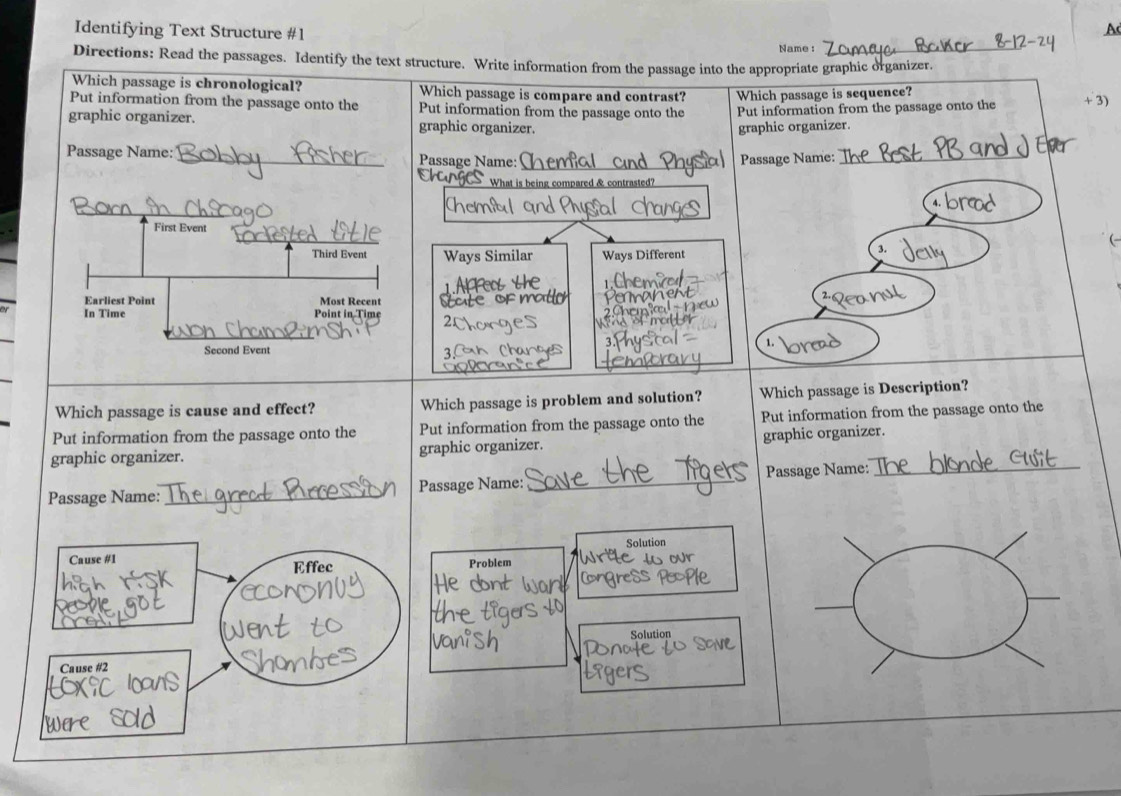 Identifying Text Structure #1
Name: Zameya Baker 8-12-24
Directions: Read the passages. Identify the text structure. Write information from the passage into the appropriate graphic organizer.
+ 3)
Which passage is chronological?
Put information from the passage onto the
graphic organizer.
Passage Name: Bobby fisher
Born in Chicago
First Event
Forfeited title
Third Event
Earliest Point
In Time
Most Recent
Point in Time
won Champimship
Second Event
Which passage is compare and contrast?
Put information from the passage onto the
graphic organizer.
Passage Name: Chemial and Physial
Changes
What is being compared & contrasted?
Chemial and Physial changs
Ways Similar
1. Affect the
state of matter
2 Changes
3. Can changes
apperanice
Ways Different
1. Chemical =
Permanent
2. Chemical - new
kind of matter
3. Physical =
temporary
Which passage is sequence?
Put information from the passage onto the
graphic organizer.
Passage Name: The Best PB and J Ever
4. bread
3. Jelly
2. Peanut
1. bread
Which passage is cause and effect?
Put information from the passage onto the
graphic organizer.
Passage Name: The great Recession
Cause #1
high risk
people got
credit
Effec
econonuy
went to
Shambes
Cause #2
toxic loans
were sold
Which passage is problem and solution?
Put information from the passage onto the
graphic organizer.
Passage Name: Save the Tigers
Problem
He dont want
the tigers to
vanish
Solution
Write to our
Congress People
Solution
Donate to save
tigers
Which passage is Description?
Put information from the passage onto the
graphic organizer.
Passage Name: The blonde